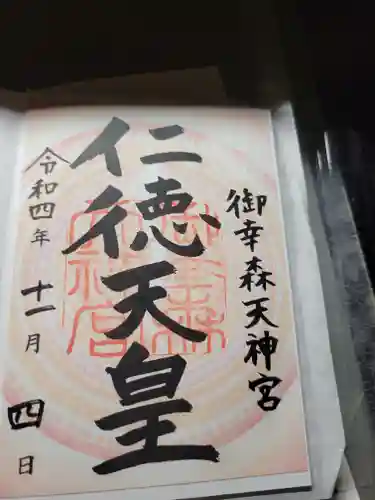 御幸森天神宮
仁徳天皇
令和四年十一月四日